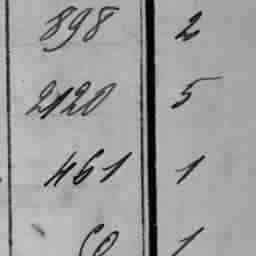 898 2
2120 5
461 1
1